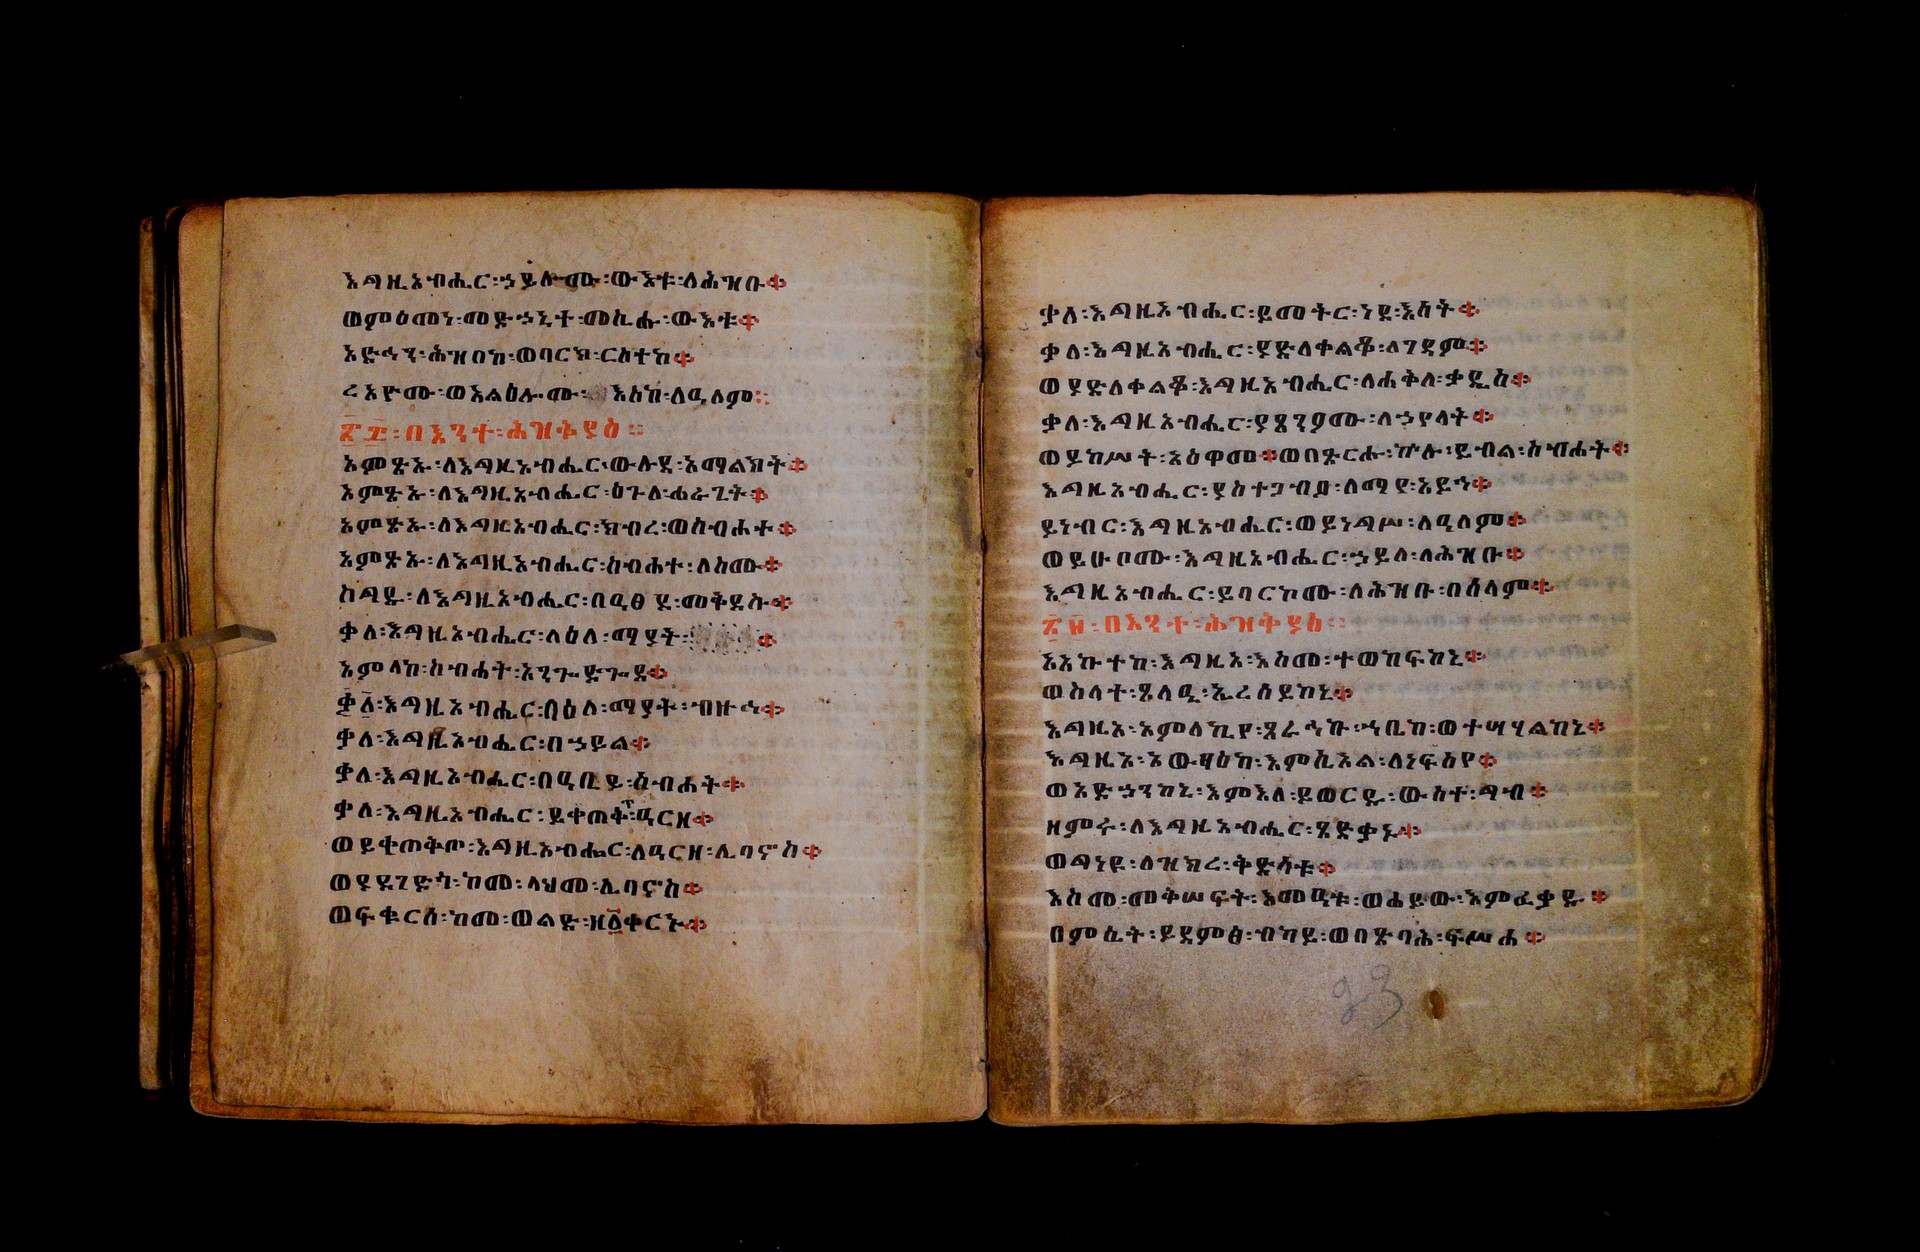 እግዚአብሔር፡ኃይሎሙ፡ውእቱ፡ለሕዝቡ፨
ወምዕመነ፡መድኃኒተ፡መሲሑ፡ውእቱ፨
አድኅን፡ሕዝበከ፡ወባርክ፡ርስተከ፨
ረአዮሙ፡ወአልዕሎሙ፡እስከ፡ለዓለም፡፡
፳፰፡በእንተ፡ሕዝቅያስ፡፡
አምጽኡ፡ለእግዚአብሔር፡ውሉደ፡አማልክት፨
አምጽኡ፡ለእግዚአብሔር፡ዕጕለ፡ሐራጊት፨
አምጽኡ፡ለእግዚአብሔር፡ክብረ፡ወስብሐተ፨
አምጽኡ፡ለእግዚአብሔር፡ስብሐተ፡ለስሙ፨
ስግዱ፡ለእግዚአብሔር፡በዓፀደ፡መቅደሱ፨
ቃለ፡እግዚአብሔር፡ላዕለ፡ማያት፡፨
አምላከ፡ስብሐት፡አንጐድጐደ፨
ቃለ፡እግዚአብሔር፡በዕለ፡ማያት፡ብዙኅ፨
ቃለ፡እግዚአብሔር፡በኃይል፨
ቃለ፡እግዚአብሔር፡በዓቢይ፡ስብሐት፨
ቃለ፡እግዚአብሔር፡ይቀጠቅጥ፡ዓርዘ፨
ወይቀጠቅጦ፡እግዚአብሔር፡ለዓርዘ፡ሊባኖስ፨
ወያደገድጎ፡ከመ፡ላህመ፡ሊባኖስ፨
ወፍቁርሰ፡ከመ፡ወልድ፡ዘ፩ቀርኑ፨
ቃለ፡እግዚአብሔር፡ይመትር፡ነደ፡እሳት፨
ቃለ፡እግዚአብሔር፡ያድለቀልቆ፡ለገዳም፨
ወያድለቀልቆ፡እግዚአብሔር፡ለሐቅለ፡ቃዴስ፨
ቃለ፡እግዚአብሔር፡ያጸንዖሙ፡ለኃየላት፨
ወይከሥት፡አዕዋመ፨ወበጽርሑ፡ኵሉ፡ይብል፡ስብሐት፨
እግዚአብሔር፡ያስተጋብኦ፡ለማየ፡አይኅ፨
ይነብር፡እግዚአብሔር፡ወይነግሥ፡ለዓለም፨
ወይሁቦሙ፡እግዚአብሔር፡ኃይለ፡ለሕዝቡ፨
እግዚአብሔር፡ይባርኮሙ፡ለሕዝቡ፡በሰላም፨
፳፱፡በእንተ፡ሕዝቅያስ፡፡
አአኵተከ፡እግዚኦ፡እስመ፡ተወከፍከኒ፨
ወስላት፡ጸላዒ፡ኢረሰይከኒ፨
እግዚኦ፡አምላኪየ፡ጸራኅኩ፡ኀቤከ፡ወተሣሃልከኒ፨
እግዚኦ፡አውፃዕከ፡እምሲኦል፡ለነፍስየ፨
ወአድኃንከኒ፡እምእለ፡ይወርዱ፡ውስተ፡ግብ፨
ዘምሩ፡ለእግዚአብሔር፡ጻድቃኑ፨
ወግነዩ፡ለዝክረ፡ቅድሳቱ፨
እስመ፡መቅሠፍት፡እመዓቱ፡ወሐይው፡እምፈቃዱ፨
በምሴት፡ይደምፅ፡ብካይ፡ወበጽባሕ፡ፍሥሐ፨
93